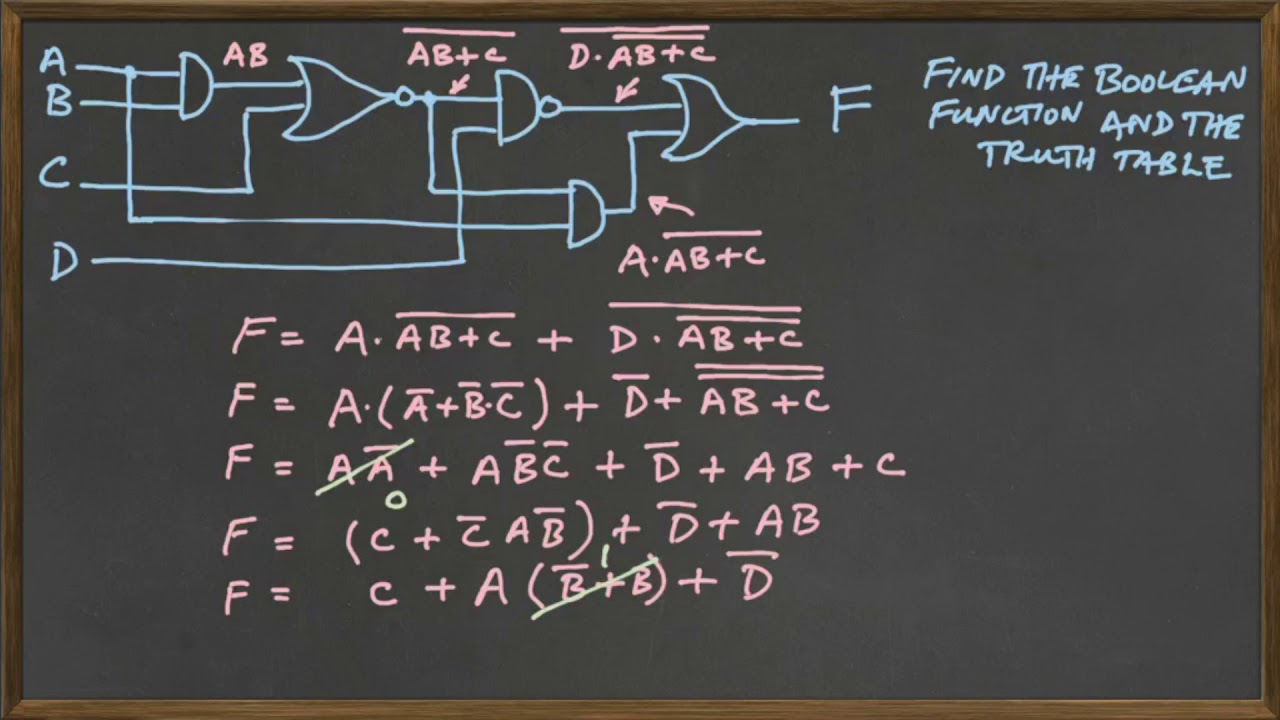 A
B
C
D
AB
A̅B̅+̅C̅
D·AB+C (with overlines: D̅·̅A̅̅B̅̅+̅̅C̅̅)
F
A·A̅B̅+̅C̅
FIND THE BOOLEAN
FUNCTION AND THE
TRUTH TABLE
F = A·A̅B̅+̅C̅ + D̅·̅A̅̅B̅̅+̅̅C̅̅
F = A·(A̅+B̅·C̅) + D̅ + A̅̅B̅̅+̅̅C̅̅
F = AA̅ + AB̅C̅ + D̅ + AB + C
0
F = (C + C̅AB̅) + D̅ + AB
1
F = C + A(B̅+B) + D̅